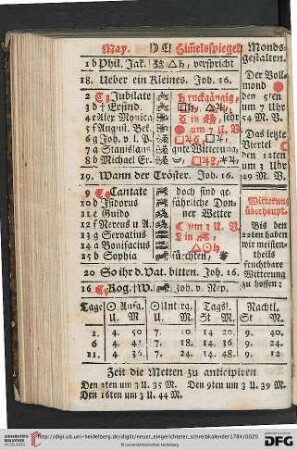 May.
Himelsspiegel
Monds-
gestalten.
1 b Phil. Jak. verspricht
18. Ueber ein Kleines, Joh. 16.
Der Voll-
mond
den 5ten
um 7 Uhr
54 M. V.
2 Jubilate
3 d † Erfind.
4 e Flor. Monica
5 f August. Bek.
6 g Joh. v. l. P.
7 a Stanislaus
gute Witterung,
8 b Michael Er.
Das letzte
Viertel
den 12ten
um 3 Uhr
49 M. V.
19. Wann der Tröster. Joh. 16.
9 Cantate doch sind ge-
10 d Isidorus fährliche Don-
11 e Guido ner Wetter
12 f Nereus u. A.
13 g Servatius
14 a Bonifacius
15 b Sophia
Witterung
überhaupt.
Bis den
22ten haben
wir meisten-
theils
fruchtbare
Witterung
zu hoffen;
20 So ihr d. Vat. bitten. Joh. 16.
16 Rog. †W. Joh. v. Nep.
Tage Aufg. Untrg. Tagsl. Nachtl.
U. M. U. M. St M. St. M.
1. 4. 50 7. 10 14 20. 9. 40
6 4 42 7. 18 14. 36 9. 24
11. 4 36. 7. 24 14. 48 9. 12.
Zeit die Metten zu anticipiren
Den 2ten um 3 U. 35 M. Den 9ten um 3 U. 39 M.
Den 16ten um 3 U. 44 M.
UNIVERSITÄTS-
BIBLIOTHEK
HEIDELBERG
http://digi.ub.uni-heidelberg.de/diglit/neuer_eingerichteter_schreibkalender1784/0020
© Universitätsbibliothek Heidelberg
gefördert durch die
DFG